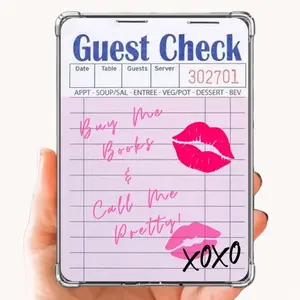 Guest Check
Date Table Guests Server
302701
APPT - SOUP/SAL - ENTREE - VEG/POT - DESSERT - BEV
Buy Me
Books
&
Call Me
Pretty!
XOXO